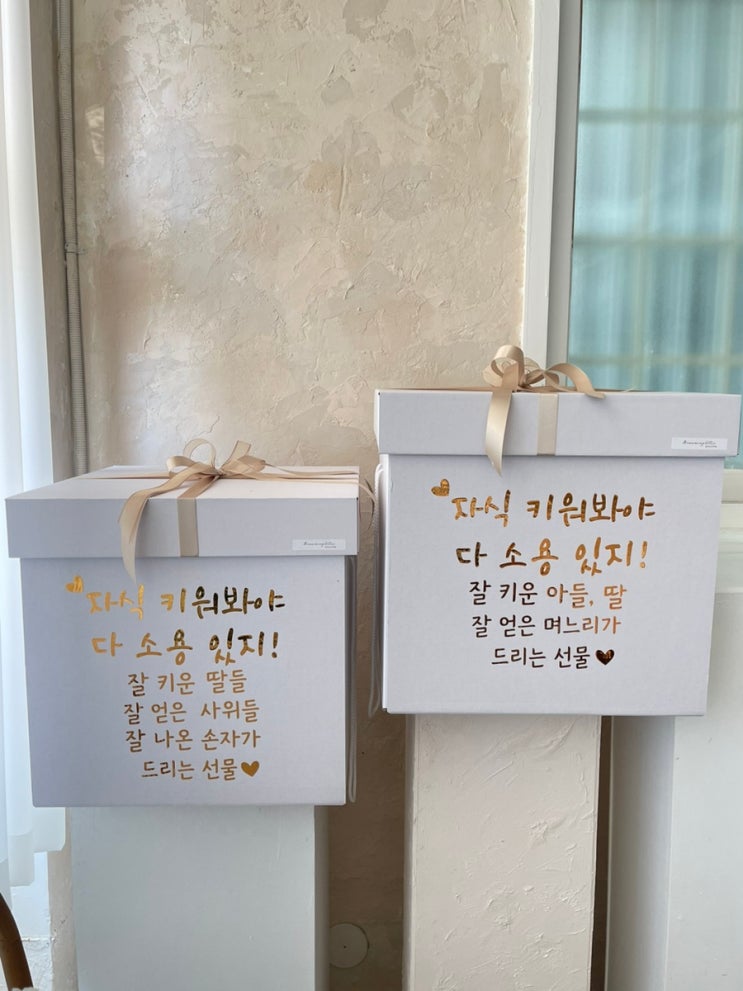 자식 키워봐야
다 소용 있지!
잘 키운 딸들
잘 얻은 사위들
잘 나온 손자가
드리는 선물♥
자식 키워봐야
다 소용 있지!
잘 키운 아들, 딸
잘 얻은 며느리가
드리는 선물♥